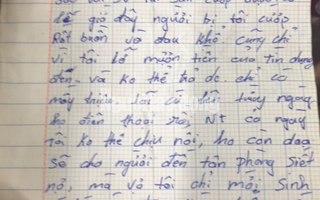 bây giờ đây người bị tôi cướp
Rất buồn và đau khổ cũng chỉ
vì tôi lỡ mượn tiền của tín dụng
đen. và ko thể trả đc. chỉ có
mấy triệu. lãi cứ lên từng ngày
họ điện thoại rồi, NT cả ngày
Tôi ko thể chịu nổi, họ còn đọa
sẽ cho người đến tân phòng siết
nợ, mà vợ tôi chỉ mới Sinh